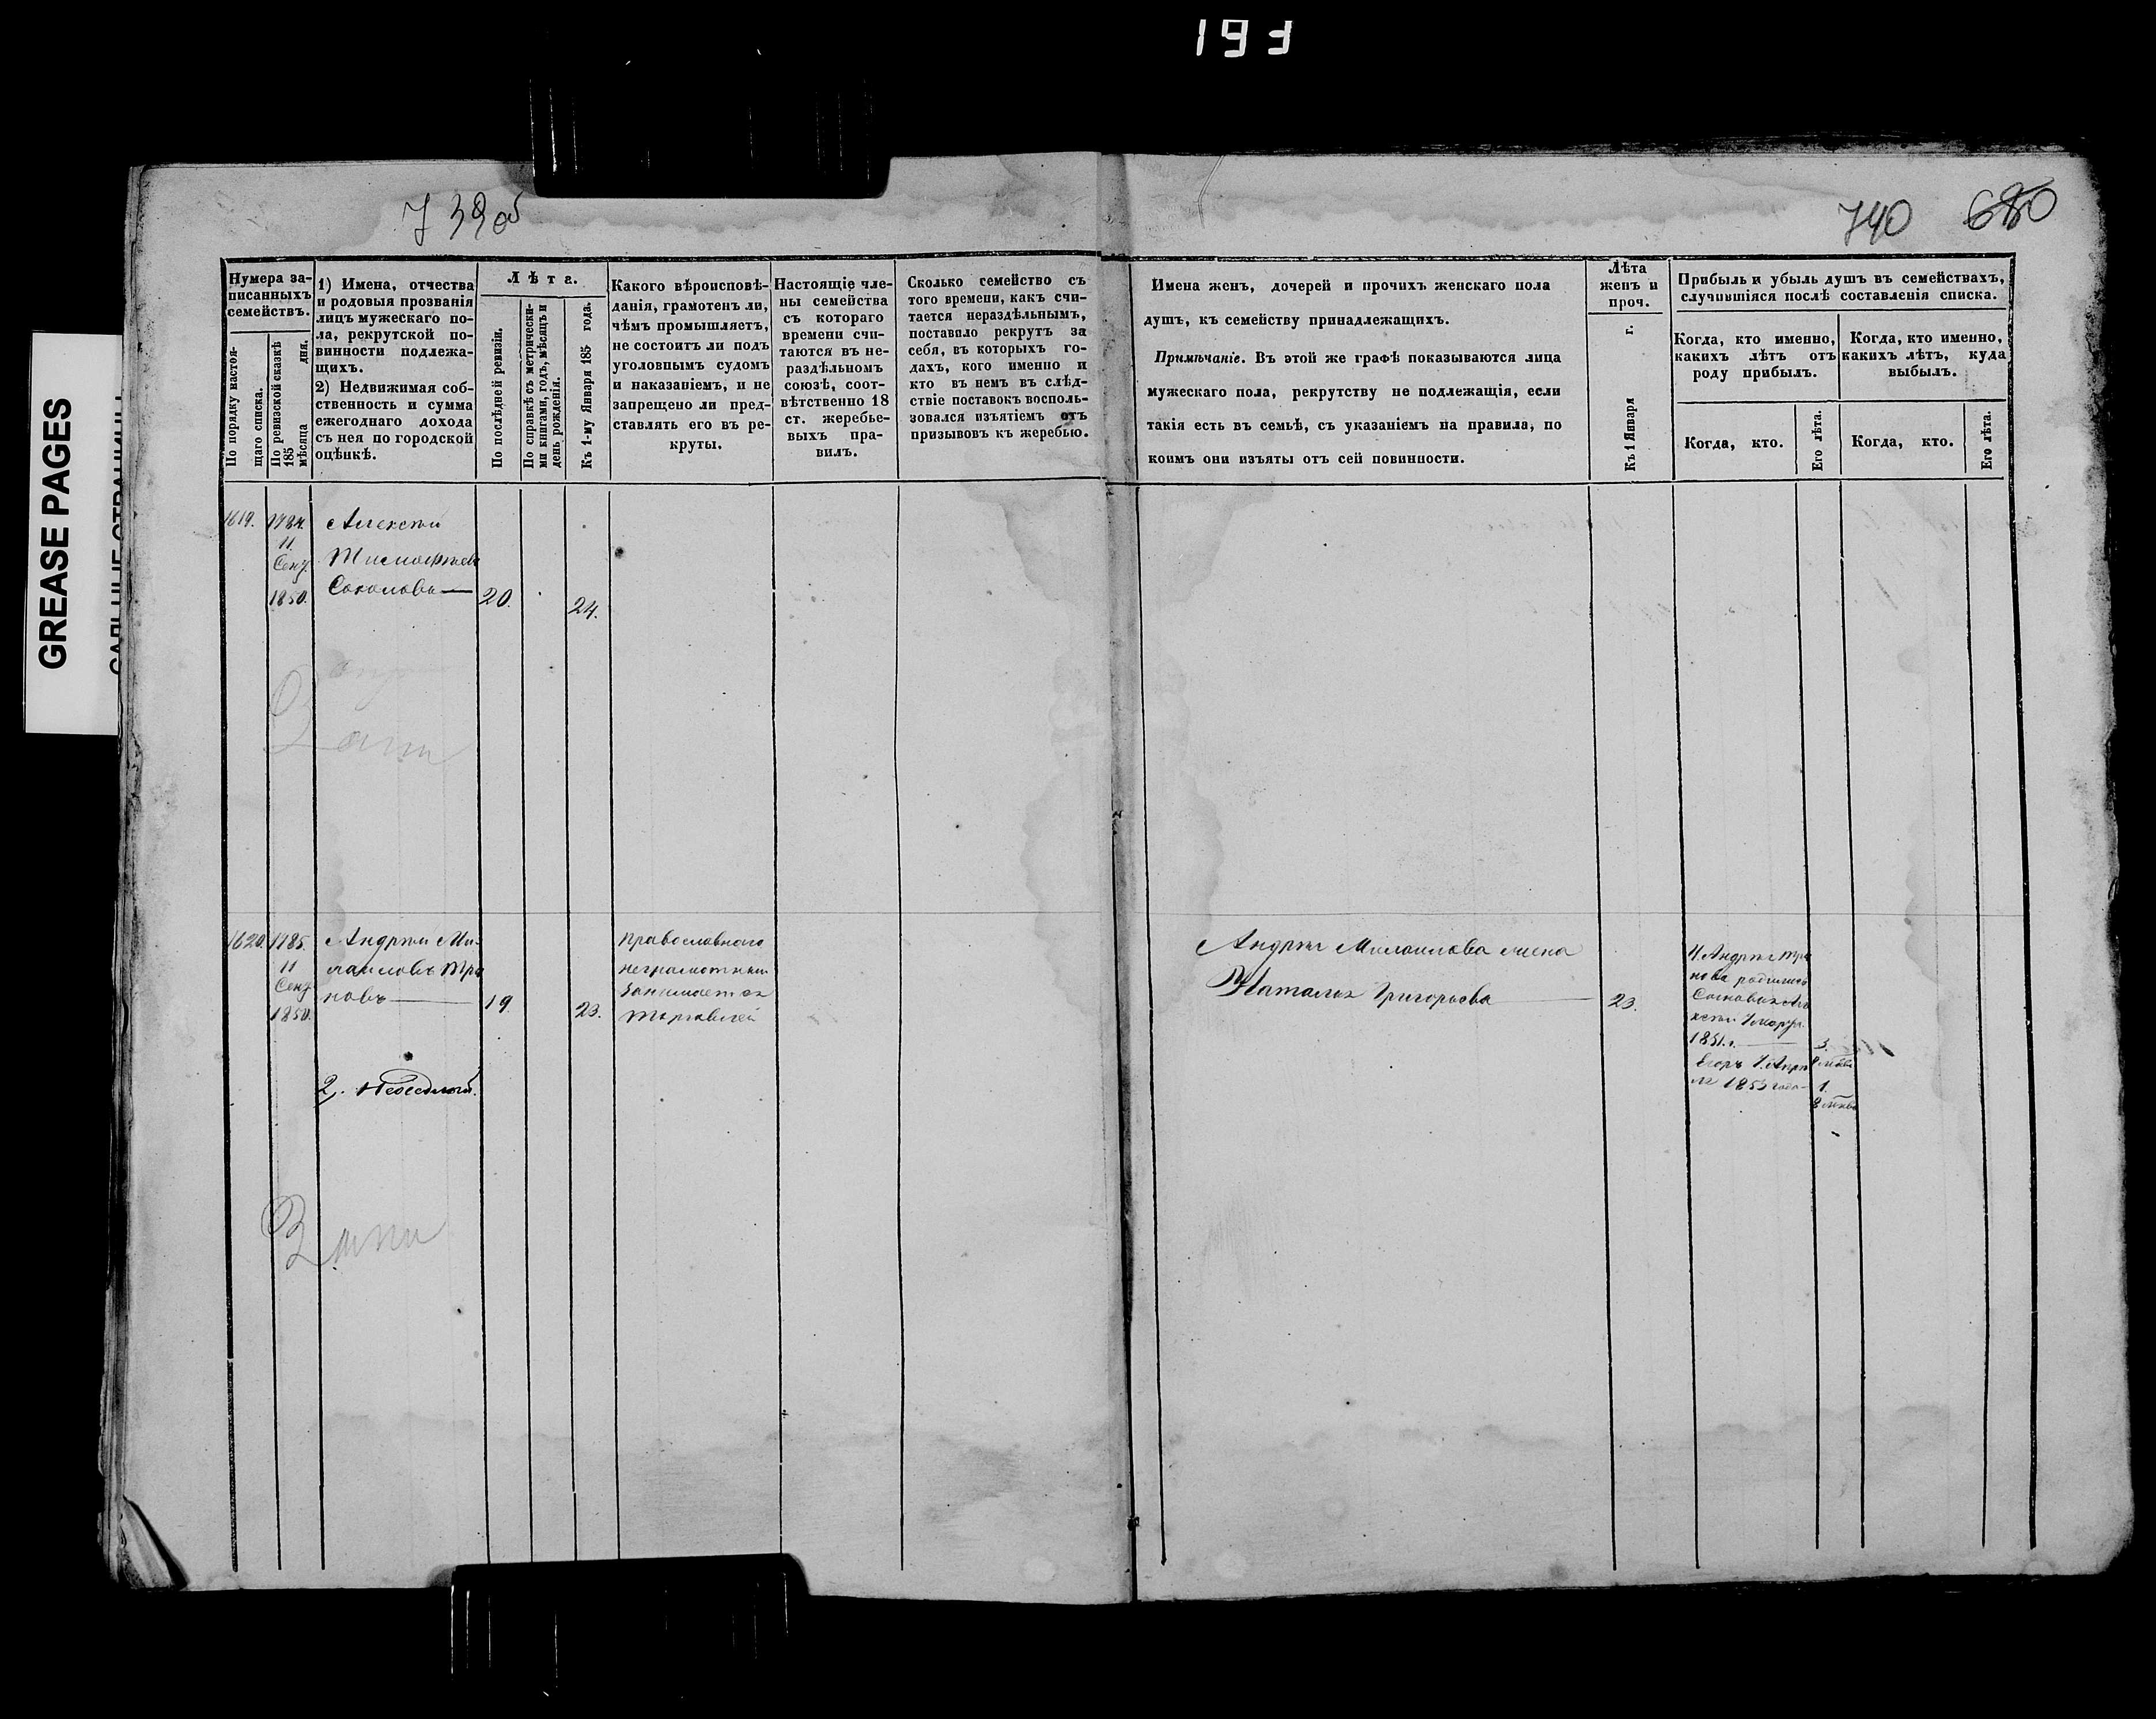 193
GREASE PAGES
739об
740 680
Нумера за-
писанныхъ
семействъ.
По порядку настоя-
щаго списка.
По ревизской сказкѣ
185 дня.
мѣсяца
1) Имена, отчества
и родовыя прозванія
лицъ мужескаго по-
ла, рекрутской по-
винности подлежа-
щихъ.
2) Недвижимая соб-
ственность и сумма
ежегоднаго дохода
съ нея по городской
оцѣнкѣ.
Лѣта.
По послѣдней ревизіи.
По справкѣ съ метрически-
ми книгами, годъ, мѣсяцъ и
день рожденія.
Къ 1-му Января 185 года.
Какого вѣроисповѣ-
данія, грамотенъ ли,
чѣмъ промышляетъ,
не состоитъ ли подъ
уголовнымъ судомъ
и наказаніемъ, и не
запрещено ли пред-
ставлять его въ ре-
круты.
Настоящіе чле-
ны семейства
съ котораго
времени счи-
таются въ не-
раздѣльномъ
союзѣ, соот-
вѣтственно 18
ст. жеребье-
выхъ пра-
вилъ.
Сколько семейство съ
того времени, какъ счи-
тается нераздѣльнымъ,
поставило рекрутъ за
себя, въ которыхъ го-
дахъ, кого именно и
кто въ немъ въ слѣд-
ствіе поставокъ восполь-
зовался изъятіемъ отъ
призывовъ къ жеребью.
Имена женъ, дочерей и прочихъ женскаго пола
душъ, къ семейству принадлежащихъ.
Примѣчаніе. Въ этой же графѣ показываются лица
мужескаго пола, рекрутству не подлежащія, если
такія есть въ семьѣ, съ указаніемъ на правила, по
коимъ они изъяты отъ сей повинности.
Лѣта
женъ и
проч.
Къ 1 Января г.
Прибыль и убыль душъ въ семействахъ,
случившіяся послѣ составленія списка.
Когда, кто именно,
какихъ лѣтъ отъ
роду прибылъ.
Когда, кто именно,
какихъ лѣтъ, куда
выбылъ.
Когда, кто.
Его лѣта.
Когда, кто.
Его лѣта.
1619. 1784. Алексѣй
11
Тимофѣевъ
Соколовъ
1850. 20. 24.
1620. 1785. Андрей Ми-
11
хайловъ
новъ 19. 23.
1850.
православнаго
неграмотный
занимается
торговлей
Андрея Михайлова жена
Наталья Григорьева 23.
У Андрея
нова родились
Сыновья Але
ксѣй
1851. г. 3.
Егоръ Апрѣ
ля 1853 года 1.
8